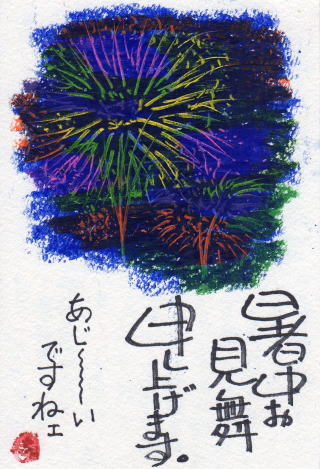 暑中お
見舞
申し上げます。
あじ〜〜〜い
ですねェ